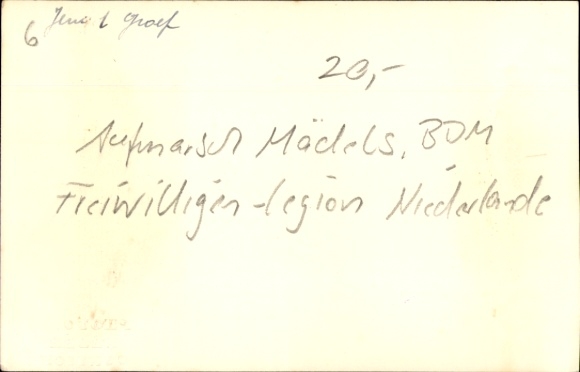 6
20,-
Aufmarsch Mädels, BDM
Freiwilligen-legion Niederlande